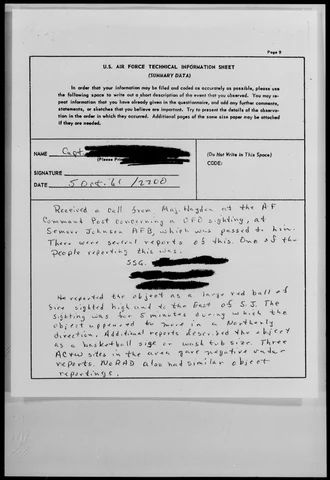 Page 8
U.S. AIR FORCE TECHNICAL INFORMATION SHEET
(SUMMARY DATA)
In order that your information may be filed and coded as accurately as possible, please use
the following space to write out a short description of the event that you observed. You may re-
peat information that you have already given in the questionnaire, and add any further comments,
statements, or sketches that you believe are important. Try to present the details of the observa-
tion in the order in which they occurred. Additional pages of the same size paper may be attached
if they are needed.
NAME Capt.
(Please Print
(Do Not Write in This Space)
CODE:
SIGNATURE
DATE 5 Oct. 61 / 2200
Received a call from Maj. Hayden at the AF
Command Post concerning a UFO sighting, at
Semour Johnson AFB, which was passed to him.
There were several reports of this. One of the
People reporting this was.
SSG.
He reported the object as a large red ball of
fire sighted high and to the East of S.J. The
sighting was for 5 minutes during which the
object appeared to move in a Northerly
direction. Additional reports described the object
as a basketball size or wash tub size. Three
AC&W sites in the area gave negative radar
reports. NORAD also had similar object
reportings.